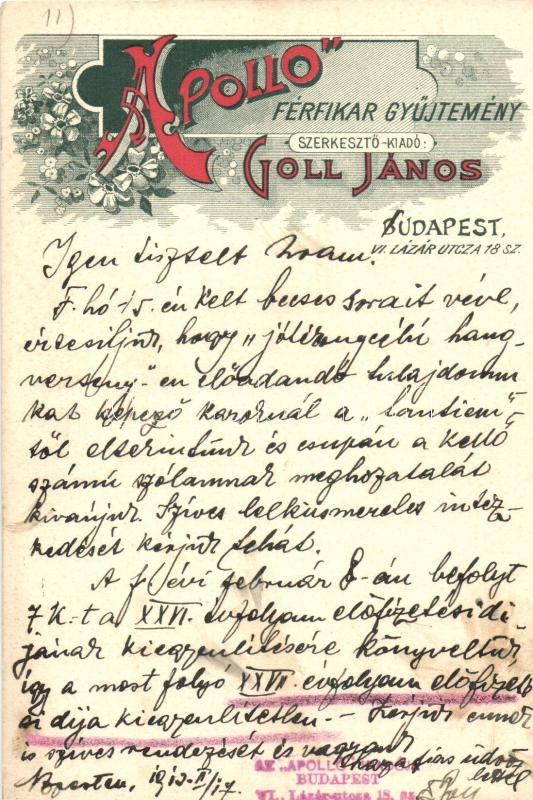 11)
"APOLLO"
FÉRFIKAR GYŰJTEMÉNY
SZERKESZTŐ-KIADÓ:
GOLL JÁNOS
BUDAPEST,
VI. LÁZÁR UTCZA 18 SZ.
Igen tisztelt Uram.
F. hó 15.-én kelt becses sorait véve,
értesítjük, hogy „jótékonycélú hang-
verseny"-en előadandó tulajdonun
kat képező karoknál a „tantiem"-
től eltekintünk és csupán a kellő
számú szólamnak meghozatalát
kivánjuk. Szíves lelkiismeretes intéz-
kedését kérjük tehát.
A f. évi február 8-án befolyt
7 K-t a XXVI. évfolyam előfizetési di
jának kiegyenlítésére könyveltük
így a most folyó XXVII. évfolyam előfizeté
si díja kiegyenlítetlen. – Kérjük ennek
is szíves rendezését és vagyunk
hazafias üdvöz
lettel
AZ "APOLLO"
BUDAPEST
VI., Lázár-utcza 18. sz.